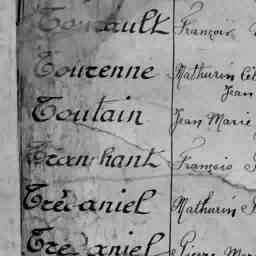 François
Tourenne Mathurin
Jean
Toutain Jean Marie
Tranchant François
Trévaniel Mathurin
Trévaniel Pierre